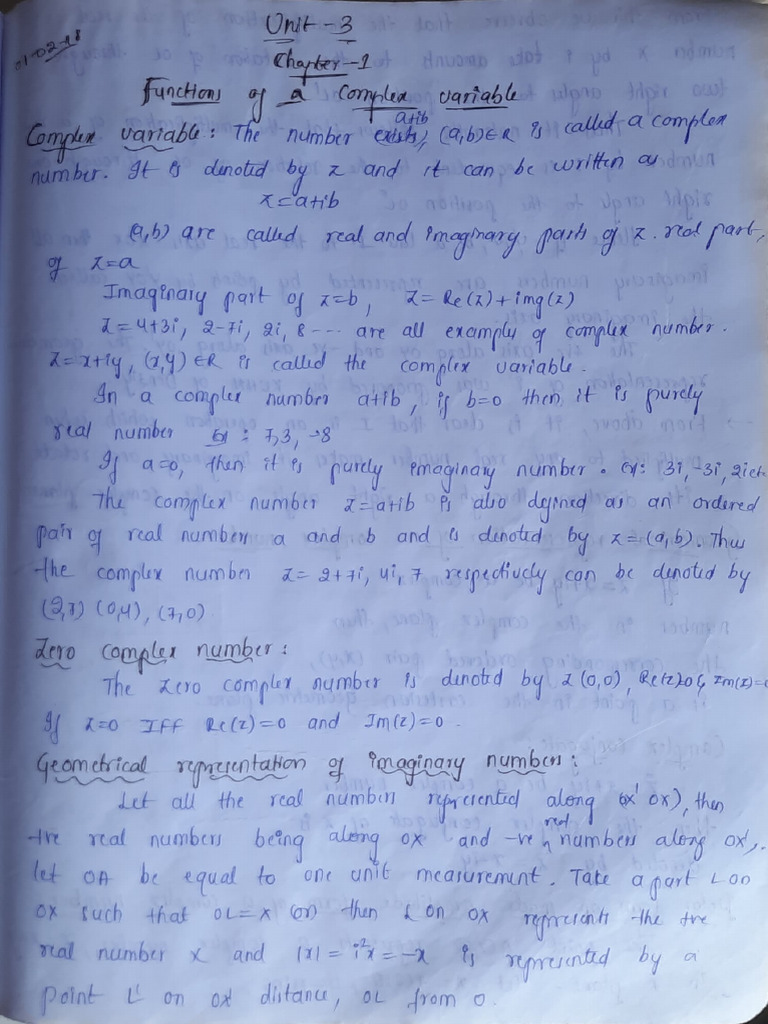 01-02-18
Unit - 3
Chapter-1
Functions of a Complex variable
Complex variable: The number a+ib exists, (a,b)∈R is called a complex
number. It is denoted by z and it can be written as
z=a+ib
(a,b) are called real and imaginary parts of z. real part,
of z=a
Imaginary part of z=b, z=Re(z)+img(z)
z=4+3i, 2-7i, 2i, 8---- are all example of complex number.
z=x+iy, (x,y)∈R is called the complex variable.
In a complex number a+ib, if b=0 then it is purely
real number ex: 7,3,-8
If a=0, then it is purely imaginary number. ex: 3i,-3i,2i etc
The complex number z=a+ib is also defined as an ordered
pair of real numbers a and b and is denoted by z=(a,b). Thus
the complex number z=2+7i, 4i, 7 respectively can be denoted by
(2,7) (0,4), (7,0)
Zero complex number:
The zero complex number is denoted by z(0,0), Re(z)=0 & Im(z)=0
If z=0 IFF Re(z)=0 and Im(z)=0.
Geometrical representation of imaginary numbers:
Let all the real numbers represented along (x' ox), then
+ve real numbers being along ox and -ve real numbers along ox',
let OA be equal to one unit measurement. Take a part L on
ox such that OL=x on then L on ox represents the +ve
real number x and |x|=i²x=-x is represented by a
point L' on ox' distance, OL from o.